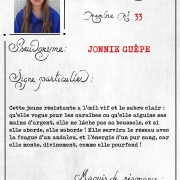 Membre N° 33
Pseudonyme: JONNIE GUÊPE
Signe particulier:
Cette jeune résistante a l'œil vif et le sabre clair :
qu'elle vogue pour les caraïbes ou qu'elle aiguise ses
mains d'argent, elle ne lâche pas sa boussole, et si
elle aborde, elle saborde ! Elle servira le réseau avec
la fougue d'un andalou, et l'énergie d'un pur sang, car
elle monte, divinement, comme elle pourfend !